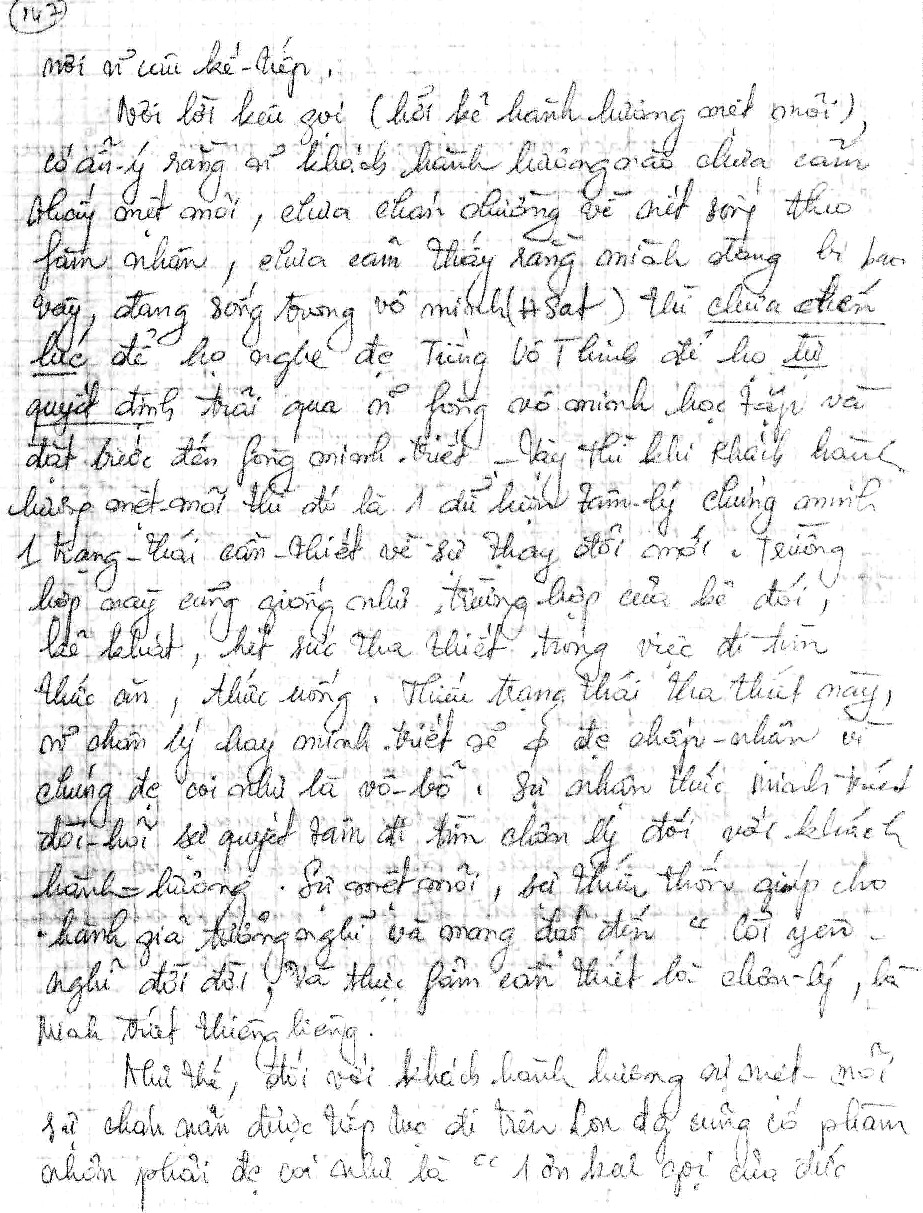 (147)
nơi n~ câu kế-tiếp.
Nơi lời kêu gọi (hỡi kẻ hành hương mệt mỏi),
có ẩn-ý rằng n~ khách hành hương nào chưa cảm
thấy mệt mỏi, chưa chán chường về nét sống theo
fàm nhân, chưa cảm thấy rằng mình đang bị bao
vây, đang sống trong vô minh (Asat) thì chưa đến
lúc để họ nghe đc Tiếng Vô Thinh để họ tự
quyết định trãi qua n~ fòng vô minh học tập và
đặt bước đến fòng minh triết. Vậy thì khi khách hành
hương mệt-mỏi thì đó là 1 dữ kiện tâm-lý chứng minh
1 trạng-thái cần-thiết về sự thay đổi mới. Trường
hợp này cũng giống như trường hợp của kẻ đói,
kẻ khát, hết sức tha thiết trong việc đi tìm
thức ăn, thức uống. Thiếu trạng thái tha thiết này,
n~ chân lý hay minh triết sẽ ϕ đc chấp-nhận vì
chúng đc coi như là vô-bổ. Sự nhận thức minh triết
đòi-hỏi sự quyết tâm đi tìm chân lý đối với khách
hành-hương. Sự mệt mỏi, sự thiếu thốn giúp cho
hành giả tưởng nghĩ và mong đạt đến "Cõi yên-
nghỉ đời đời, Và thực fẩm cần thiết là chân-lý, là
Minh triết thiêng liêng.
Như thế, đối với khách hành hương sự mệt-mỏi
sự chán nản được tiếp tục đi trên con đg cũng có phàm
nhân phải đc coi như là "1 ơn kêu gọi của đức